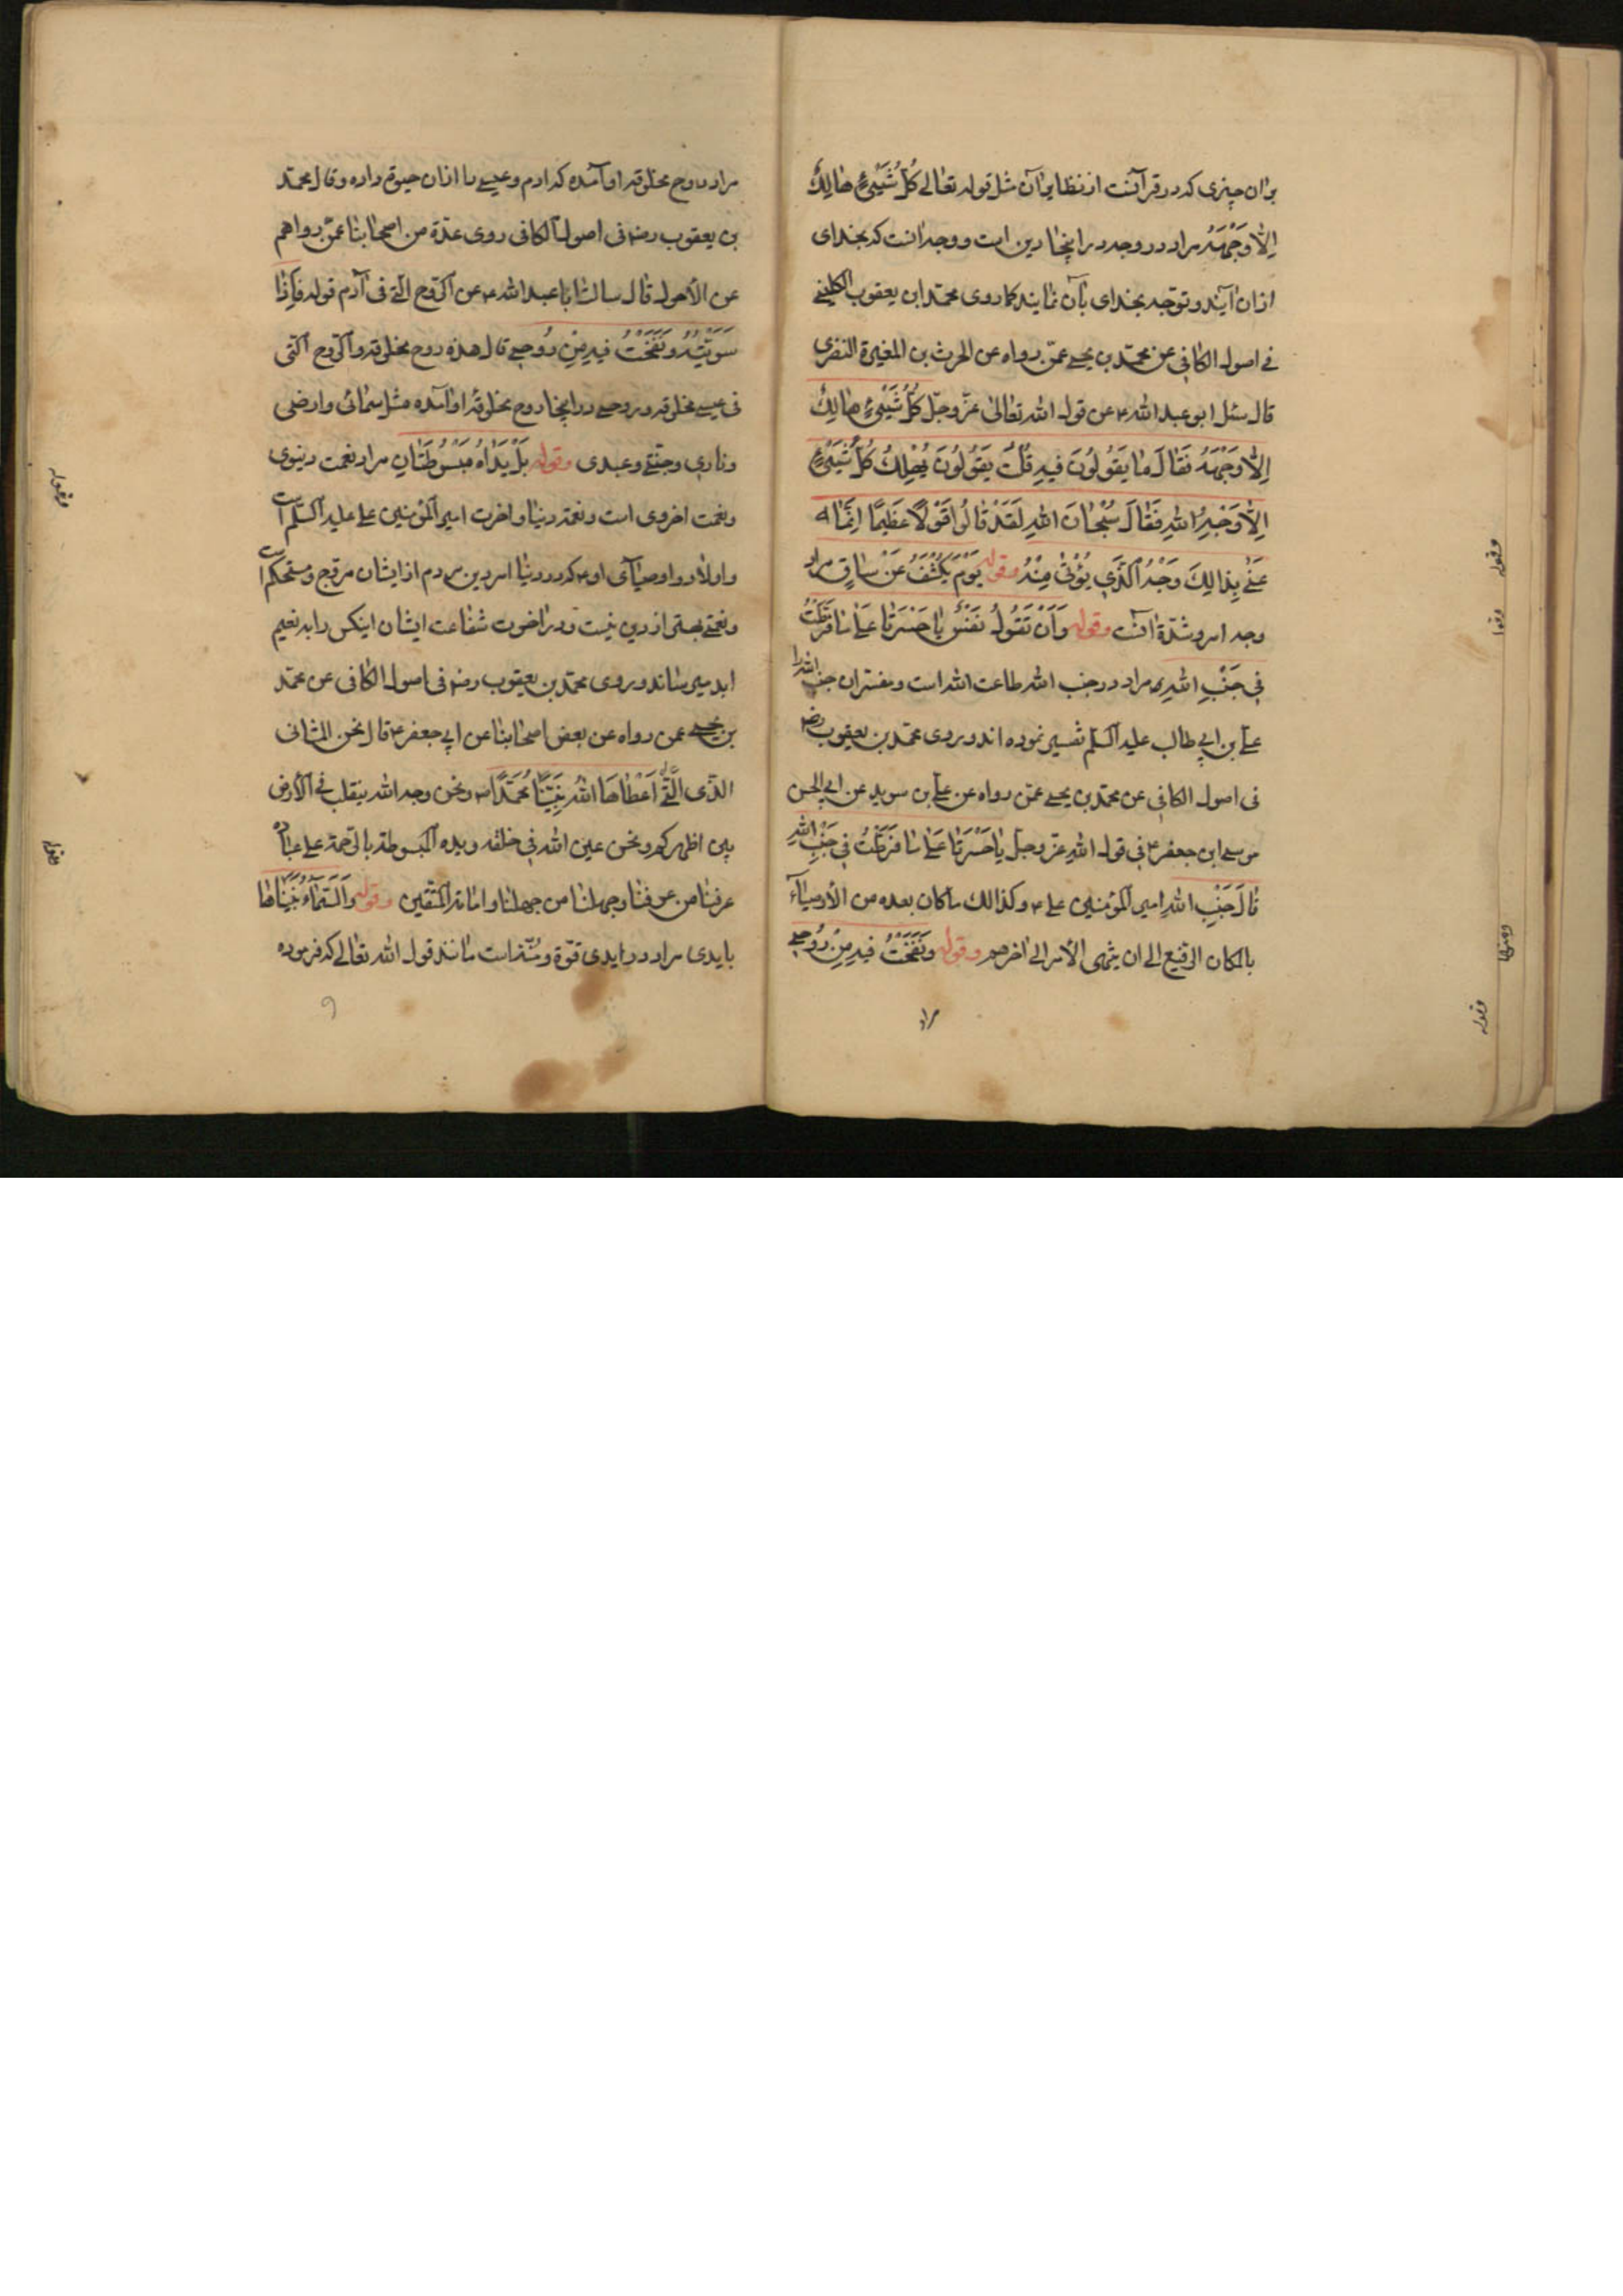 بران چیزی که در قرآنست از نظایر آن مثل قوله تعالی کُلُّ شَیْئٍ هٰالِکٌ
اِلّٰا وَجْهَهُ مراد در وجه در اینجا دین است و وجه آنست که بخدای
ازان آیند و توجه بخدای بآن نمایند کما روی محمد ابن یعقوب الکلینی
فی اصول الکافی عن محمد بن یحیی عمن رواه عن الحرث بن المغیرة النضری
قال سئل ابو عبد الله ع عن قول الله تعالی عز و جل کُلُّ شَیْئٍ هٰالِکٌ
اِلّٰا وَجْهَهُ فَقٰالَ مٰا یَقُولُونَ فیهِ قُلْتُ یَقُولُونَ یُهْلِکُ کُلَّ شَیْئٍ
اِلّٰا وَجْهَ اللهِ فَقٰالَ سُبْحٰانَ اللهِ لَقَدْ قٰالُوا قَوْلًا عَظیمًا اِنَّمٰا
عَنٰی بِذٰالِکَ وَجْهَ الَّذی یُؤْتیٰ مِنْهُ وقوله یَوْمَ یُکْشَفُ عَنْ سٰاقٍ مراد
وجه امر و شدّة آنست وقوله وَاَنْ تَقُولَ نَفْسٌ یٰا حَسْرَتٰا عَلیٰ مٰا فَرَّطْتُ
فی جَنْبِ اللهِ مراد در جنب الله طاعت الله است و مفسران جنب الله را
علی بن ابی طالب علیه السلم تفسیر نموده اند و روی محمد بن یعقوب رض
فی اصول الکافی عن محمد بن یحیی عمن رواه عن علی بن سوید عن ابی الحسن
موسی ابن جعفر ع فی قول اللهِ عز و جل یٰا حَسْرَتٰا عَلیٰ مٰا فَرَّطْتُ فی جَنْبِ اللهِ
قٰالَ جَنْبِ اللهِ امیر المؤمنین علی ع و کذالک ما کان بعده من الأوصیآء
بالمکان الرفیع الی ان ینتهی الأمر الی اخرهم وقوله وَنَفَخْتُ فیهِ مِنْ رُوحی
مراد
مراد روح مخلوقه او آمده که آدم و عیسی را ازان حیوة داده و قال محمد
بن یعقوب رض فی اصول الکافی روی عدّة من اصحابنا عمن رواهم
عن الأحول قال سالت ابا عبد الله ع عن الروح التی فی آدم قوله فَاِذٰا
سَوَّیْتُهُ وَنَفَخْتُ فیهِ مِنْ رُوحی قال هذه روح مخلوقة و الروح التی
فی عیسی مخلوقة و روحی در اینجا روح مخلوقه او آمده مثل سمائی و ارضی
و ناری و جنتی و عبدی وقوله بَلْ یَدٰاهُ مَبْسُوطَتٰانِ مراد نعمت دنیوی
و نعمت اخروی است و نعمة دنیا و اخرت امیر المؤمنین علی علیه السلم است
و اولاد و اوصیآی او ع که در دنیا امر دین مردم از ایشان مروج و مستحکم است
و نعمتی بهتر از دین نیست و در اخرت شفاعت ایشان اینکس را به نعیم
ابد میرساند و روی محمد بن یعقوب رض فی اصول الکافی عن محمد
بن یحیی عمن رواه عن بعض اصحابنا عن ابی جعفر ع قال نحن المثانی
الذی الَّتی اَعْطٰاهَا اللهُ نَبِیَّنٰا مُحَمَّدًا ص و نحن وجه الله ینقلب فی الأرض
بین اظهرکم و نحن عین الله فی خلقه و یده المبسوطة بالرحمة علی عباده
عرفنا من عرفنا و جهلنا من جهلنا و امامة المتقین وقوله وَالسَّمٰآءَ بَنَیْنٰاهٰا
بایدی مراد در ایدی قوّة و شدّت است مانند قول الله تعالی که فرموده